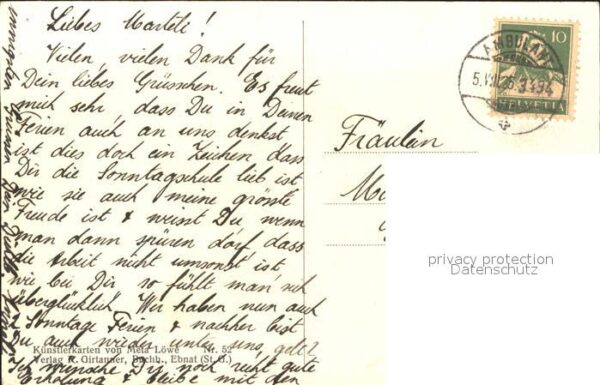 Liebes Marteli!
Vielen, vielen Dank für
Dein liebes Grüsschen. Es freut
mich sehr, dass Du in Deinen
Ferien auch an uns denkst
ist dies doch ein Zeichen, dass
Dir die Sonntagschule lieb ist
wie sie auch meine grösste
Freude ist & weisst Du, wenn
man dann spüren darf, dass
die Arbeit nicht umsonst ist,
wie bei Dir, so fühlt man sich
überglücklich. Wir haben nun auch
2 Sonntage Ferien & nachher bist
Du auch wieder unter uns, gelt?
Ich wünsche Dir noch recht gute
Erholung & bleibe mit den
innigsten Grüssen Deine
Künstlerkarten von Meta Löwe Nr. 52
Verlag R. Girtanner, Buchh., Ebnat (St. G.)
Fräulein
10
HELVETIA
AMBULANT
privacy protection
Datenschutz